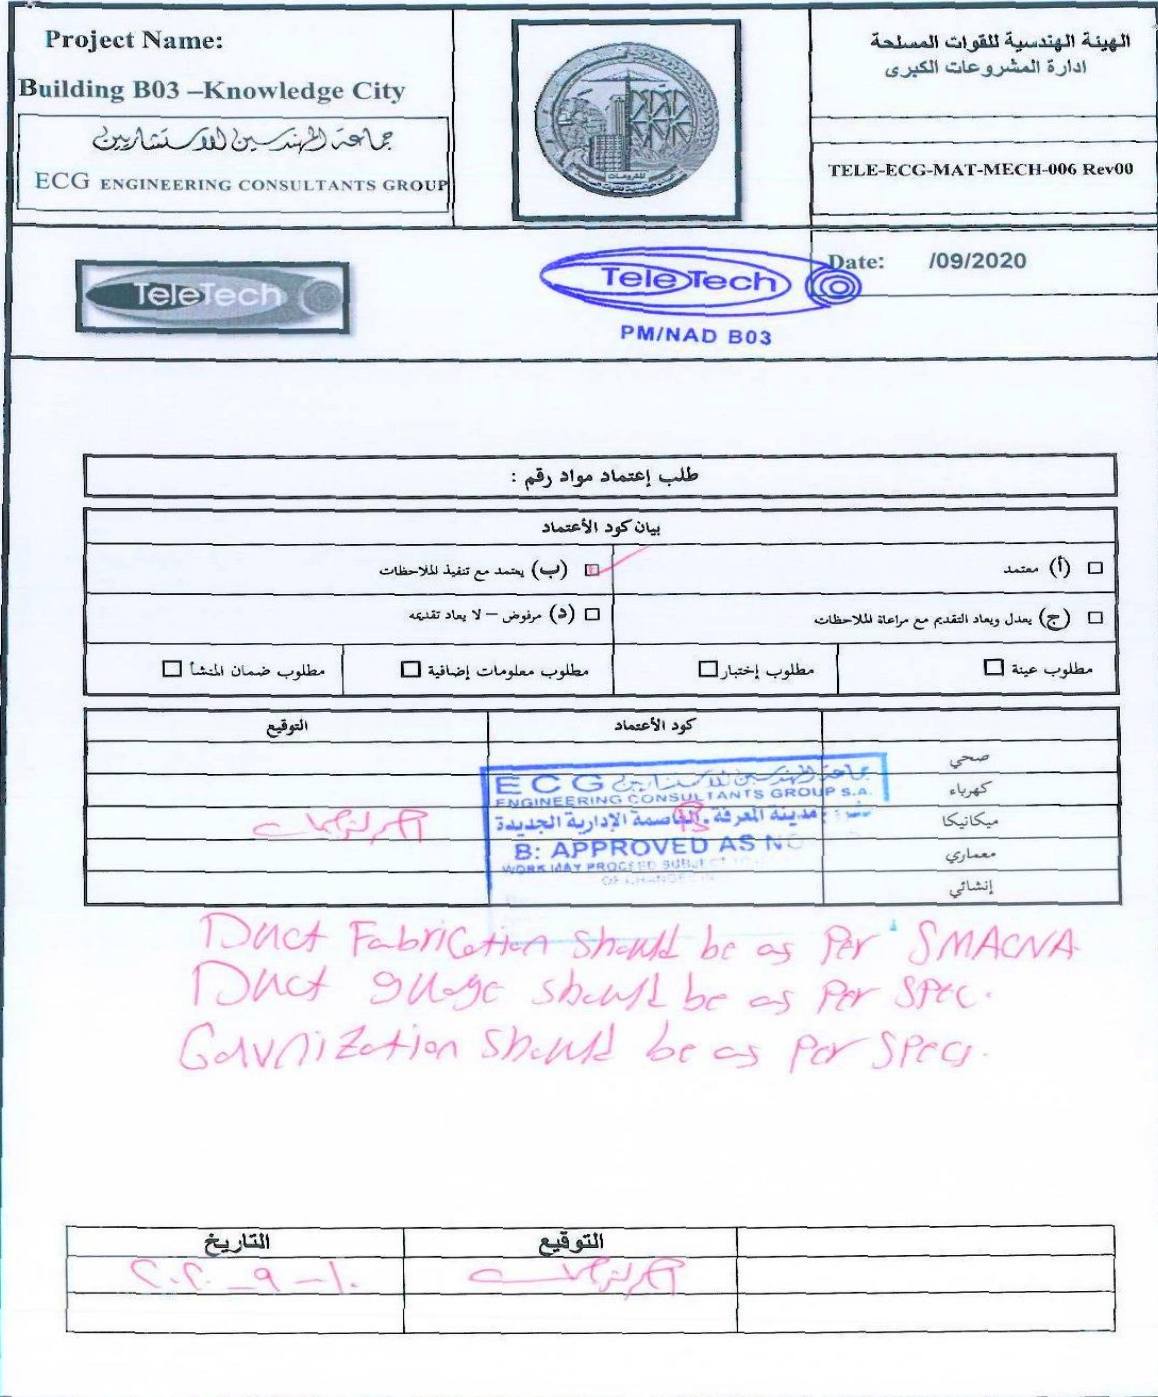 Project Name:
Building B03 –Knowledge City
جماعة المهندسين الاستشاريين
ECG ENGINEERING CONSULTANTS GROUP
الهيئة الهندسية للقوات المسلحة
ادارة المشروعات الكبرى
TELE-ECG-MAT-MECH-006 Rev00
TeleTech
TeleTech
PM/NAD B03
Date: /09/2020
طلب إعتماد مواد رقم :
بيان كود الأعتماد
(أ) معتمد
(ب) يعتمد مع تنفيذ الملاحظات
(ج) يعدل ويعاد التقديم مع مراعاة الملاحظات
(د) مرفوض – لا يعاد تقديمه
مطلوب عينة
مطلوب إختبار
مطلوب معلومات إضافية
مطلوب ضمان المنشأ
كود الأعتماد
التوقيع
صحي
كهرباء
ميكانيكا
معماري
إنشائي
ECG جماعة المهندسين الاستشاريين
ENGINEERING CONSULTANTS GROUP S.A.
مدينة المعرفة. العاصمة الإدارية الجديدة
B: APPROVED AS NO
WORK MAY PROCEED SUBJECT TO
OF CHANGES
B
Duct Fabrication should be as Per SMACNA
Duct guage should be as Per Spec.
Galvnization should be as Per Specs.
التوقيع
التاريخ
١٠-٩-٢٠٢٠